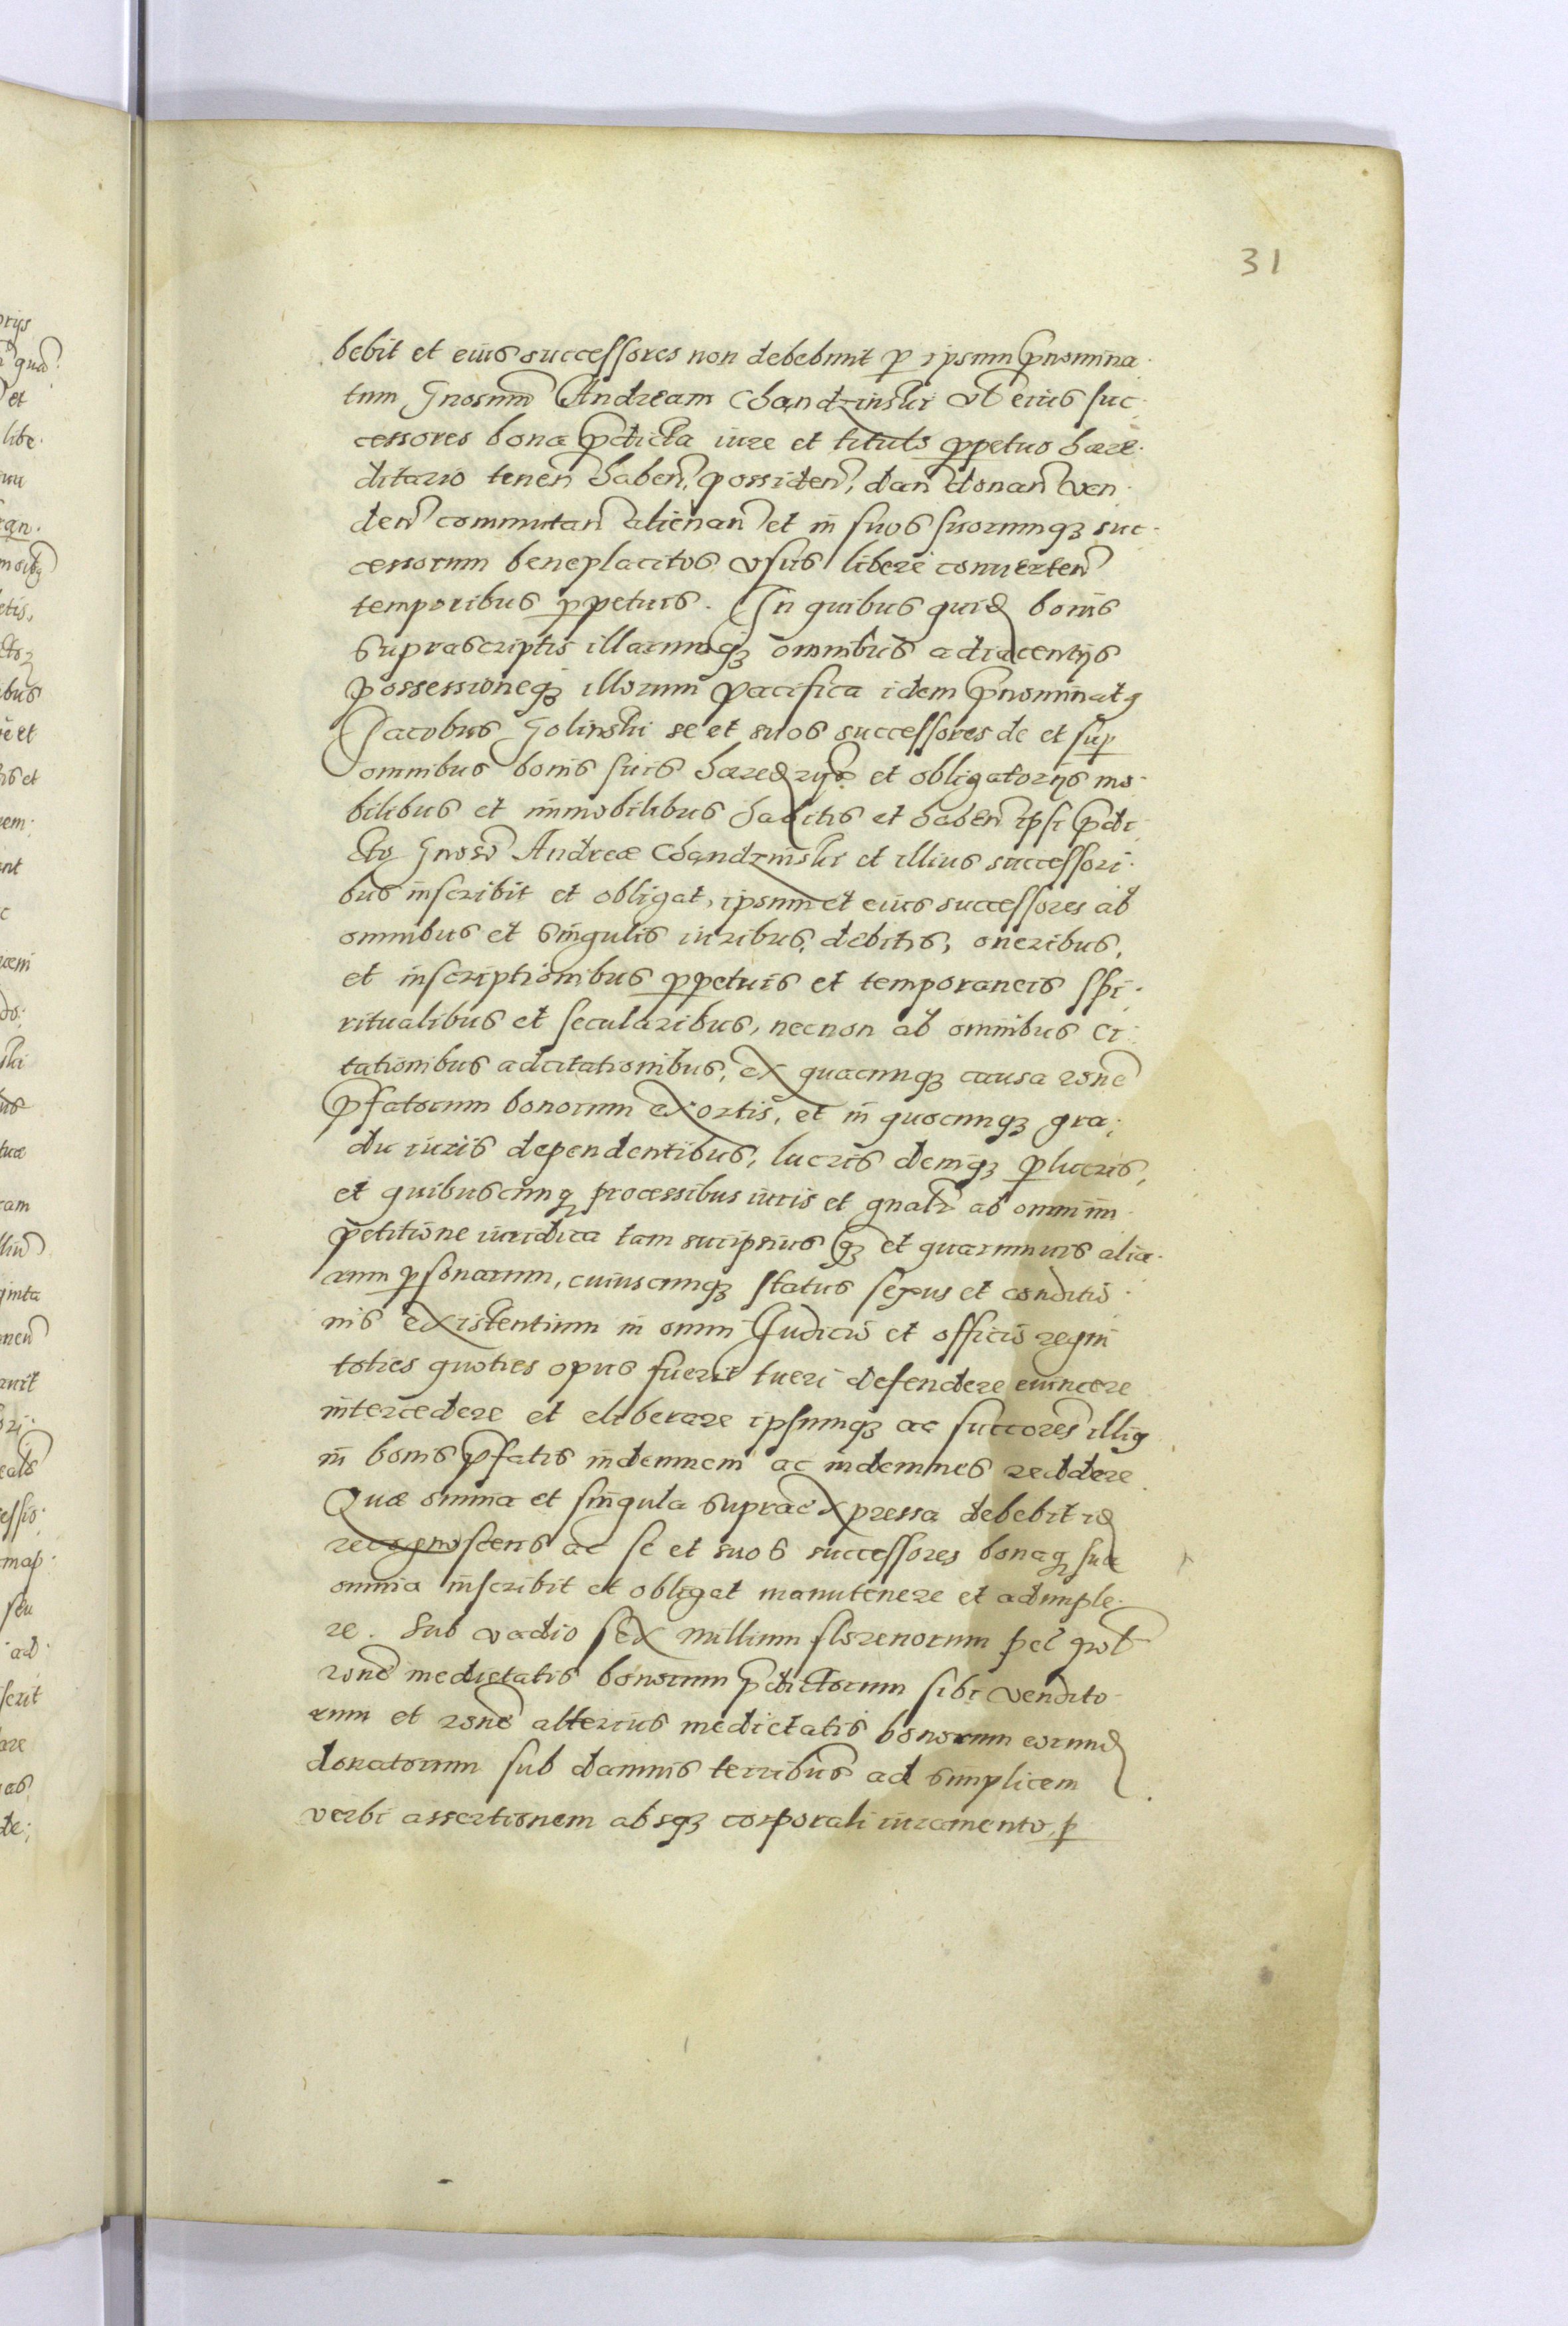 31
bebit et eius successores non debebunt p̱ ipsum p̄nomina
tum Gnosum̃ Andream Chandzinski vl̃ eius suc
cessores bona p̄dicta iure et titulo p̱petuo hære
ditario tenen̄ haben̄, possiden̄, dan̄ donan̄ ven
den̄ commutan̄ alienan̄ et in suos suorumqꝫ suc
cessorum beneplacitos vsus libere conuerten̄
temporibus p̱petuis. In quibus quid̃ bonis
suprascriptis illarumqꝫ omnibus adiacentijs
possessioneqꝫ illorum pacifica idem p̄nominatꝯ
Jacobus Golinski se et suos successores de et sup̱
omnibus bonis suis hæred̃rijs et obligatorijs mo
bilibus et immobilibus habitis et haben̄ ipsi p̄di
cto Gnoso Andreæ Chandzinski et illius successori
bus inscribit et obligat, ipsum et eius successores ab
omnibus et singulis iuribus, debitis, oneribus,
et inscriptionibus p̱petuis et temporaneis spi
ritualibus et secularibus, necnon ab omnibus ci
tationibus adcitationibus, ex quacunqꝫ causa rōne
p̄fatorum bonorum exortis, et in quocunqꝫ gra
du iuris dependentibus, lucris deniqꝫ p̱lucris,
et quibuscunqꝫ processibus iuris et gnalr̃ ab omni im
petitione iuridica tam suiipsius qꝫ et quarumuis alia
rum p̱sonarum, cuiuscunqꝫ status sexus et conditio
nis existentium in omni Judicio et officio regni
toties quoties opus fuerit tueri defendere euincere
intercedere et eliberare ipsumqꝫ ac succores̃ illiꝯ
in bonis p̄fatis indemnem ac indemnes reddere
Quæ omnia et singula supraexpressa debebit id̃
recognoscens ac se et suos successores bonaqꝫ sua
omnia inscribit et obligat manutenere et adimple
re. Sub vadio sex millium florenorum pēl pol̃
rōne medietatis bonorum p̄dictorum sibi vendito
rum et rōne alterius medietatis bonorum eorund̃
donatorum sub damnis terribus̃ ad simplicem
verbi assertionem absqꝫ corporali iuramento, p̱